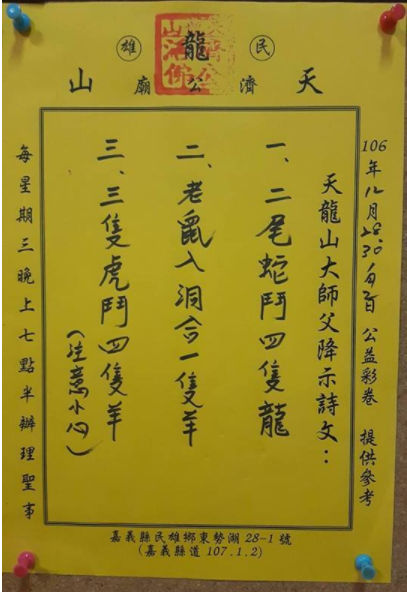 民雄
天龍山
濟公廟
106年12月28.30 公益彩卷 提供參考
天龍山大師父降示詩文：
一、二尾蛇鬥四隻龍
二、老鼠入洞合一隻羊
三、三隻虎鬥四隻羊
（注意小心）
每星期三晚上七點半辦理聖事
嘉義縣民雄鄉東勢湖28-1號
(嘉義縣道107.1.2)